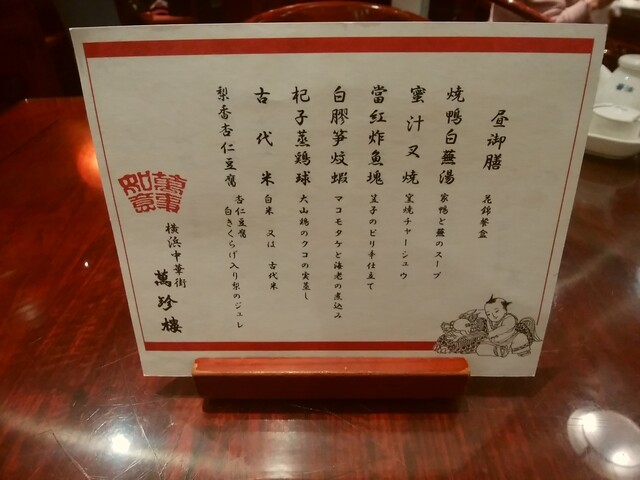 昼御膳
花錦餐盒
焼鴨白蕪湯
家鴨と蕪のスープ
蜜汁叉焼
窯焼チャーシュウ
當紅炸魚塊
笠子のピリ辛仕立て
白膠笋炆蝦
マコモタケと海老の煮込み
杞子蒸鶏球
大山鶏のクコの実蒸し
古代米
白米 又は 古代米
梨香杏仁豆腐
杏仁豆腐
白きくらげ入り梨のジュレ
萬事如意
横浜中華街
萬珍樓